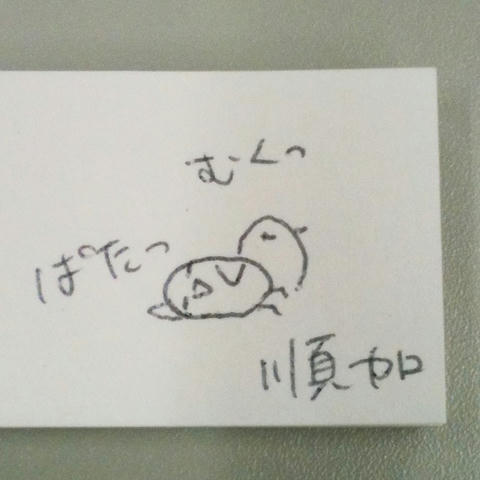 むくっ
ぱたっ
順加